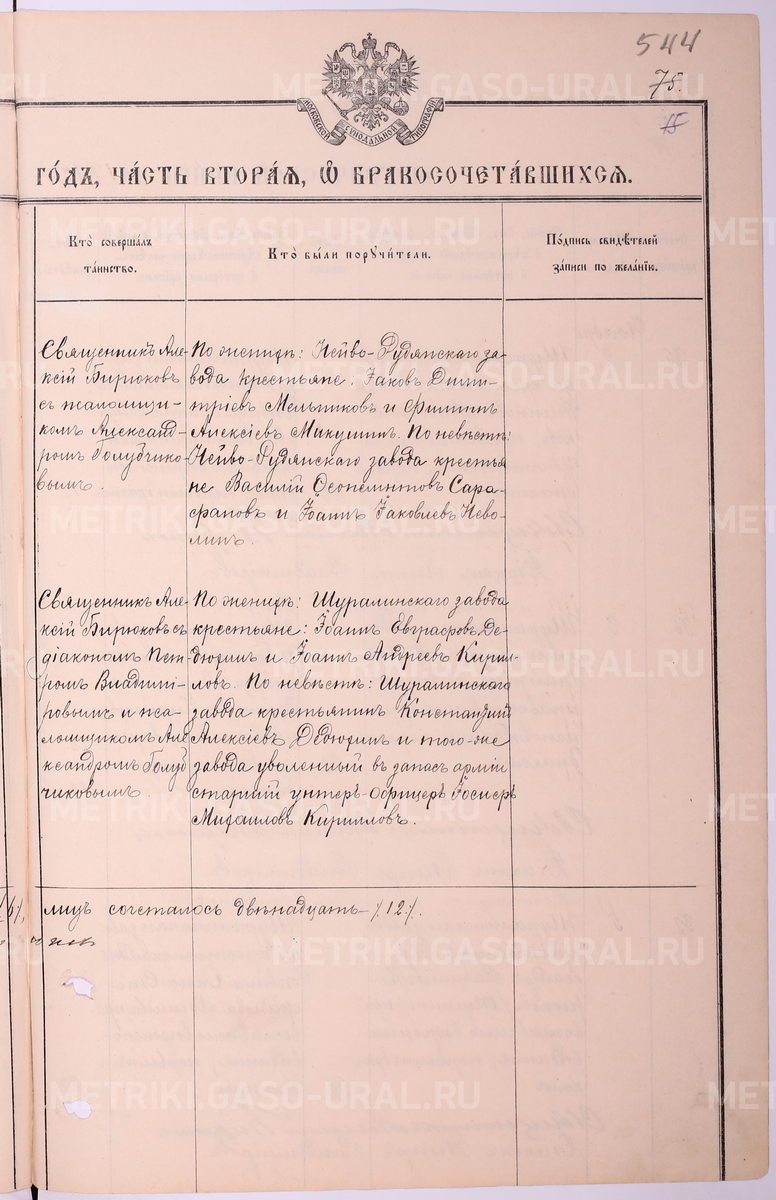 544
75.
15
МОСКОВСКОЙ СѴНОДАЛЬНОЙ ТИПОГРАФІИ
ГО́ДЪ, ЧА́СТЬ ВТОРА́Я, Ѽ БРАКОСОЧЕТА́ВШИХСЯ.
Кто̀ соверша́лъ
та́инство.
Кто̀ бы́ли порꙋчи́тели.
По́дпись свидѣ́телей
за́писи по жела́нїю.
Священникъ Але-
ксій Бирюковъ
съ псаломщи-
комъ Александ-
ромъ Голубчико-
вымъ.
По женихѣ: Нейво-Рудянскаго за-
вода крестьяне: Іаковъ Дими-
тріевъ Мельниковъ и Филиппъ
Алексіевъ Микушинъ. По невѣстѣ:
Нейво-Рудянскаго завода крестья
не Василій Сара-
фановъ и Іоаннъ Іаковлевъ Нево-
линъ.
Священникъ Але-
ксій Бирюковъ съ
діакономъ Пет-
ромъ Владими-
ровымъ и пса-
ломщикомъ Але
ксандромъ Голуб
чиковымъ.
По женихѣ: Шуралинскаго завода
крестьяне: Іоаннъ Евграфовъ Де-
дюхинъ и Іоаннъ Андреевъ Кирил-
ловъ. По невѣстѣ: Шуралинскаго
завода крестьянинъ Константинъ
Алексіевъ Дедюхинъ и того-же
завода уволенный въ запасъ арміи
старшій унтеръ-офицеръ Іосифъ
Михаиловъ Кирилловъ.
лицъ сочеталось двѣнадцать ./12./.
METRIKI.GASO-URAL.RU